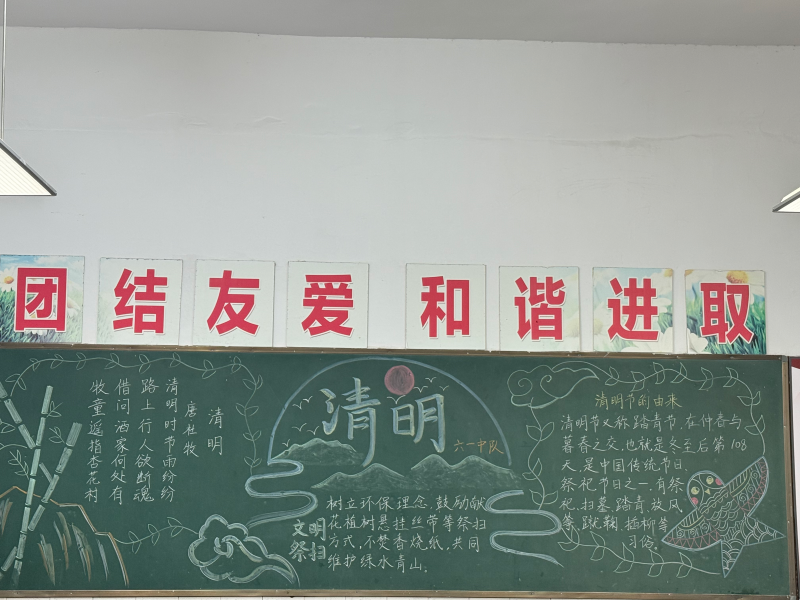 团结友爱 和谐进取
清明
唐 杜牧
清明时节雨纷纷
路上行人欲断魂
借问酒家何处有
牧童遥指杏花村
清明
六一中队
文明
祭扫
树立环保理念,鼓励献
花植树悬挂丝带等祭扫
方式,不焚香烧纸,共同
维护绿水青山。
清明节的由来
清明节又称踏青节,在仲春与
暮春之交,也就是冬至后第108
天,是中国传统节日,
祭祀节日之一,有祭
祀、扫墓、踏青、放风
筝、蹴鞠、插柳等
习俗。